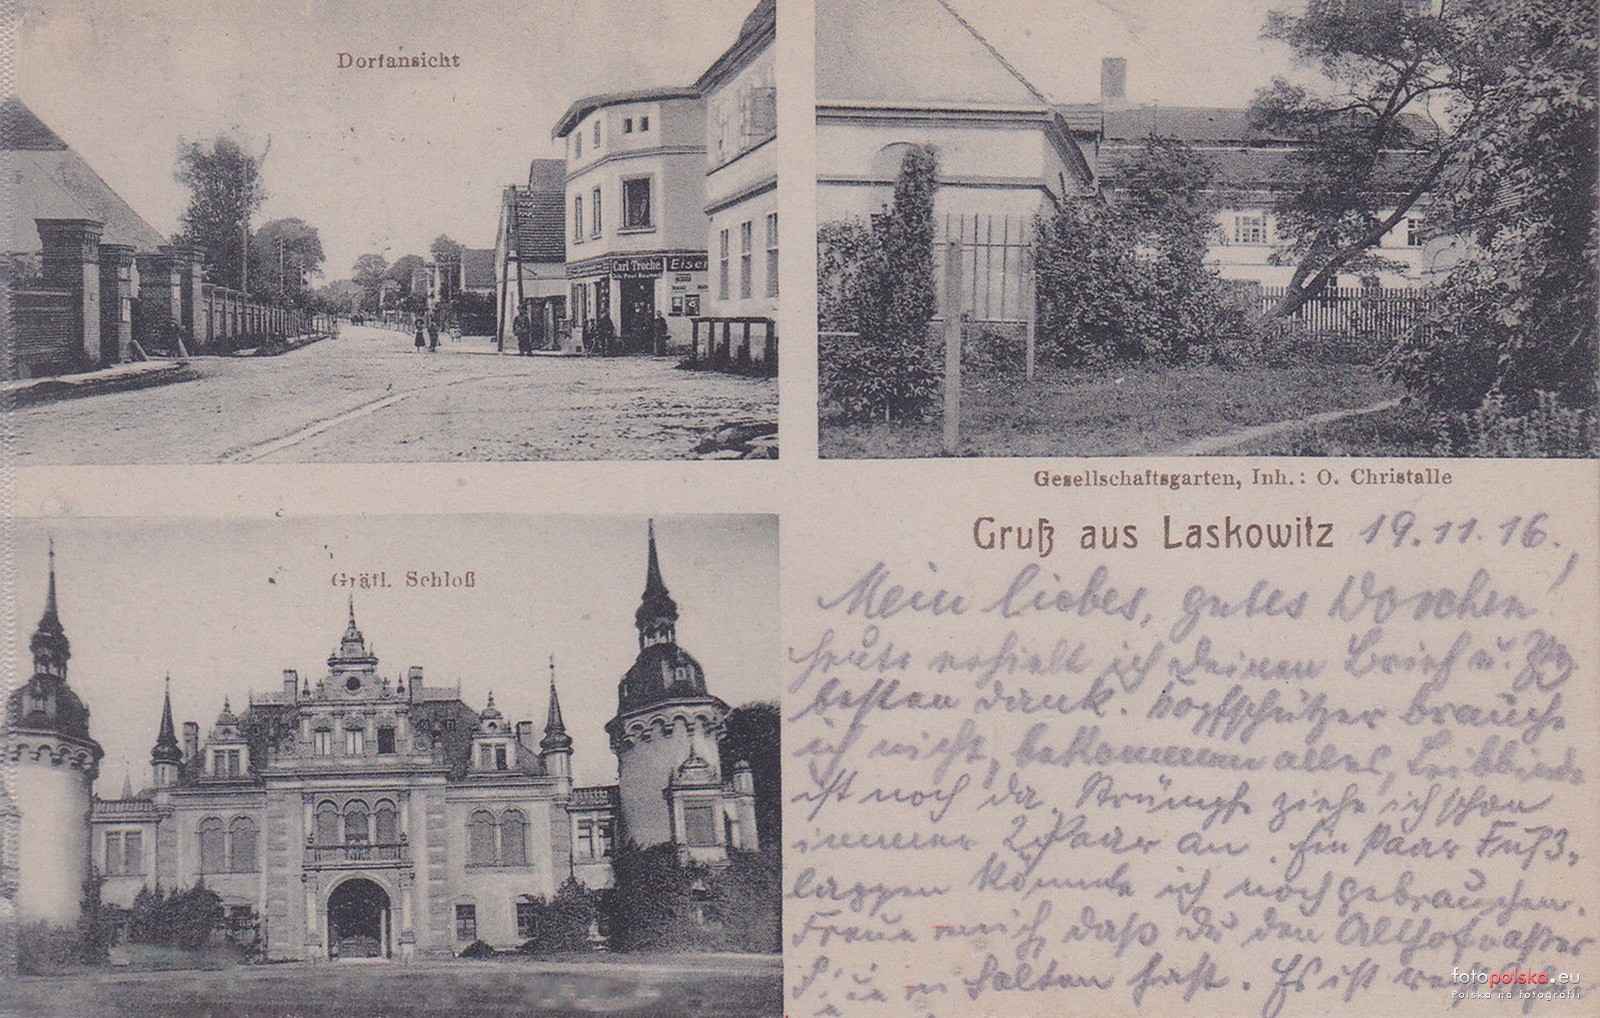 Dorfansicht
Carl Troche
Eisen
Gesellschaftsgarten, Inh.: O. Christalle
Gräfl. Schloß
Gruß aus Laskowitz 19.11.16.
Mein liebes, gutes Dorchen!
heute erhielt ich Deinen Brief u.
besten Dank. Kopfschützer brauche
ich nicht, bekommen alles, Leibbinde
ist noch da. Strümpfe ziehe ich schon
immer 2 Paar an. Ein Paar Fuß-
lappen könnte ich noch gebrauchen.
Freue mich, daß Du den
halten hast. Es ist
fotopolska.eu
Polska na fotografii